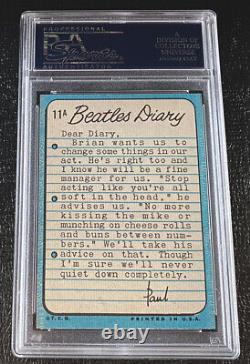 PROFESSIONAL
AUTHENTICATOR
A
DIVISION OF
COLLECTORS
UNIVERSE
11A Beatles Diary
Dear Diary,
Brian wants us to
change some things in our
act. He's right too and
I know he will be a fine
manager for us. "Stop
acting like you're all
soft in the head," he
advises us. "No more
kissing the mike or
munching on cheese rolls
and buns between num-
bers." We'll take his
advice on that. Though
I'm sure we'll never
quiet down completely.
Paul
©T.C.G. PRINTED IN U.S.A.